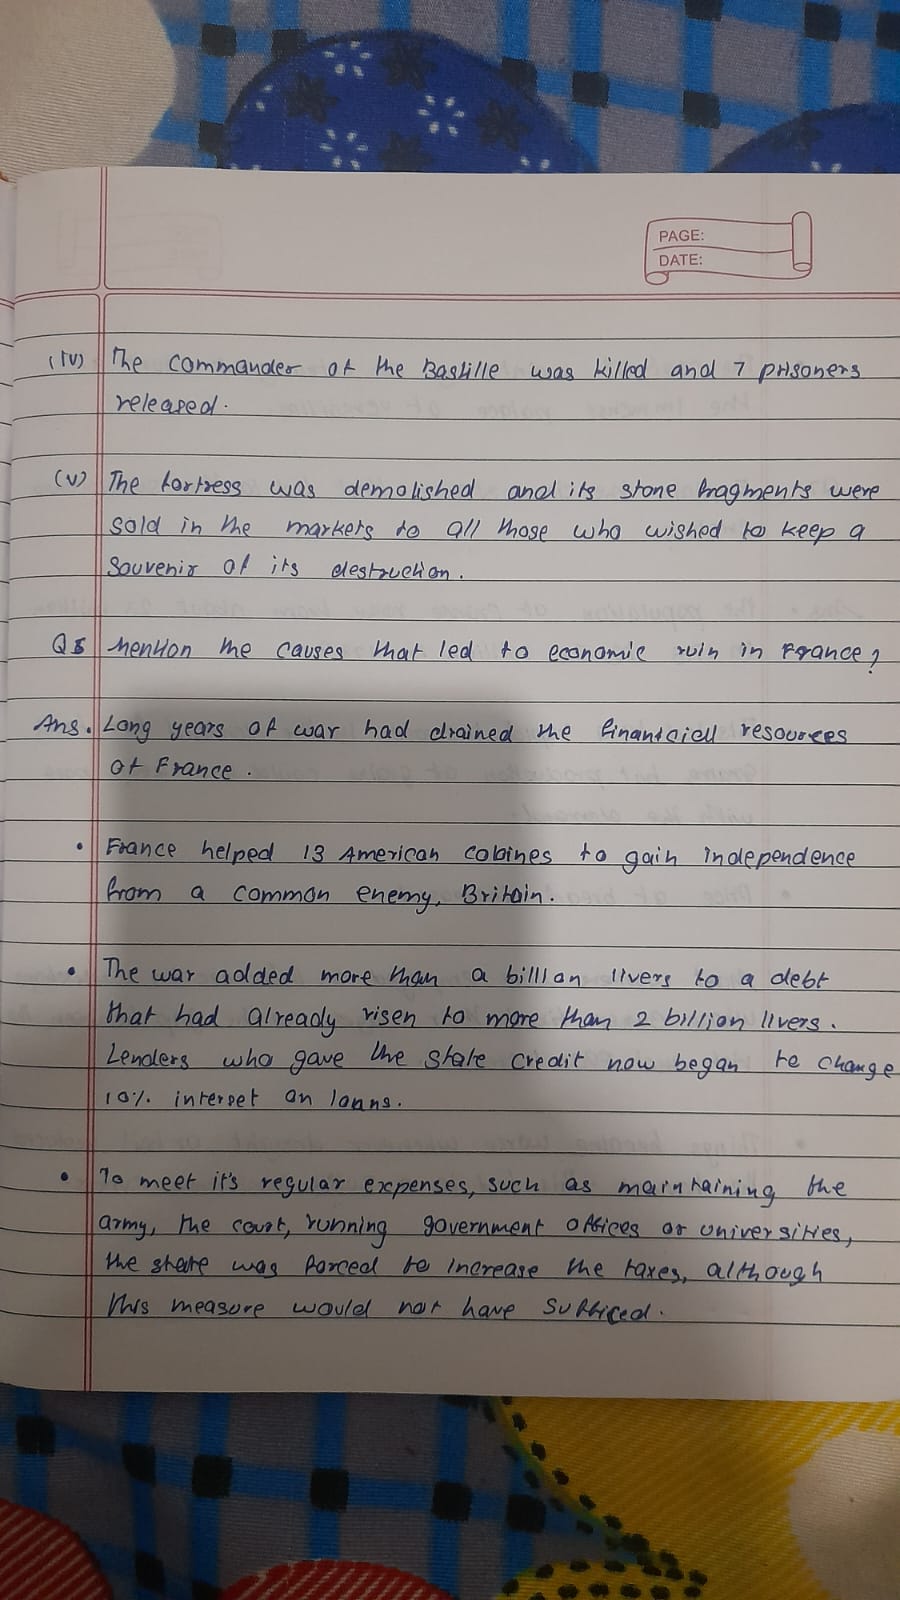 PAGE:
DATE:
(IV) The commander of the Bastille was killed and 7 prisoners
released.
(V) The fortress was demolished and its stone fragments were
sold in the markets to all those who wished to keep a
souvenir of its destruction.
Q5 Mention the causes that led to economic ruin in France?
Ans. Long years of war had drained the financiall resources
of France.
• France helped 13 American coloines to gain independence
from a common enemy, Britain.
• The war added more than a billion livers to a debt
that had already risen to more than 2 billion livers.
Lenders who gave the state credit now began to change
10% interset on loans.
• To meet it's regular expenses, such as maintaining the
army, the court, running government offices or universities,
the state was forced to increase the taxes, although
this measure would not have sufficed.